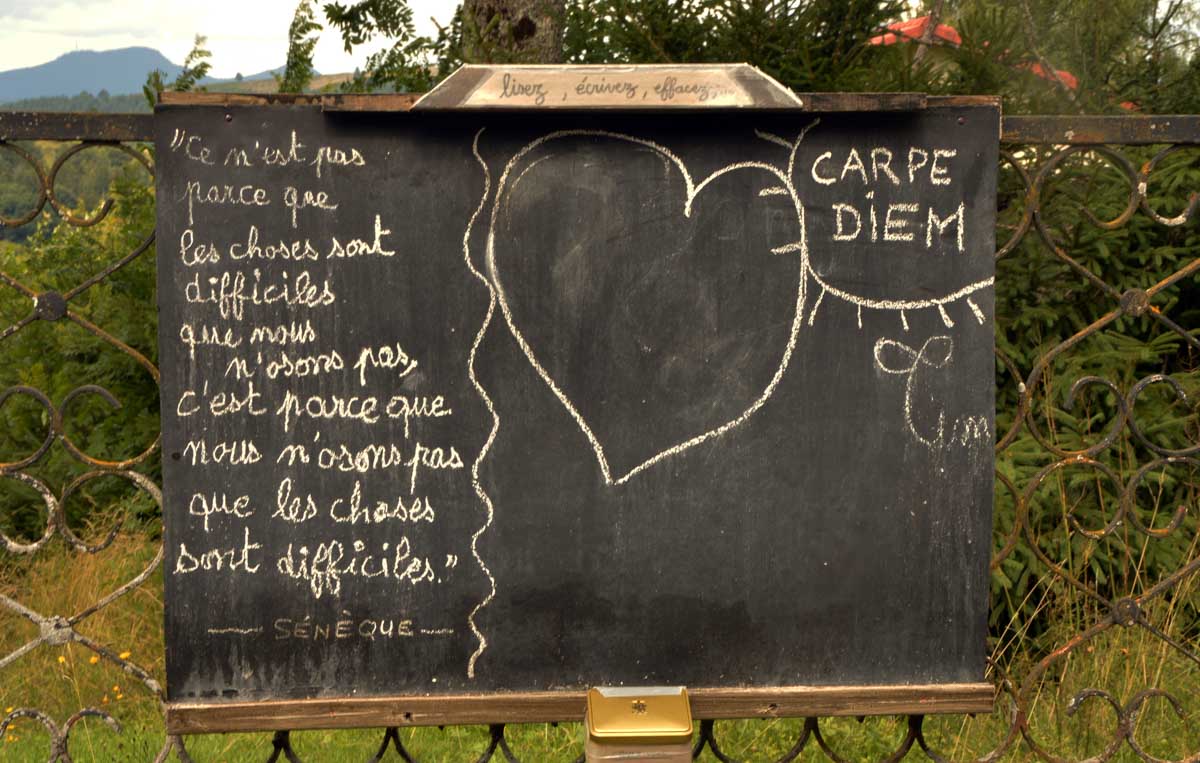 lisez, écrivez, effacez...
"Ce n'est pas
parce que
les choses sont
difficiles
que nous
n'osons pas,
c'est parce que
nous n'osons pas
que les choses
sont difficiles."
— SÉNÈQUE —
CARPE
DIEM